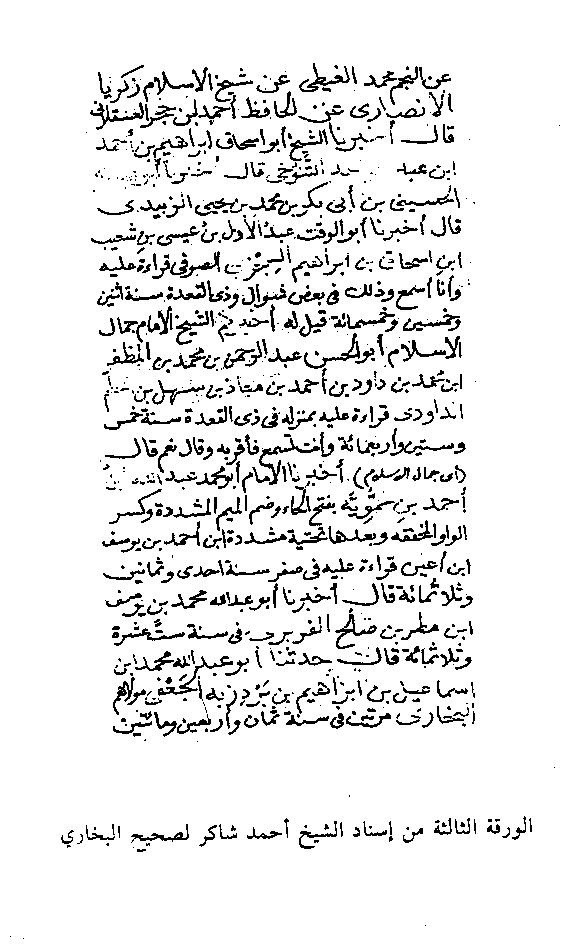 عن النجم محمد الغيطي عن شيخ الاسلام زكريا
الانصارى عن الحافظ أحمد بن حجر العسقلاني
قال أخبرنا الشيخ أبو اسحاق ابراهيم بن أحمد
ابن عبد التنوخي قال
الحسين بن أبى بكر بن محمد بن يحيى الزبيدى
قال أخبرنا أبو الوقت عبد الأول بن عيسى بن شعيب
ابن اسحاق بن ابراهيم السجزى الصوفى قراءة عليه
وأنا أسمع وذلك فى بعض شوال وذى القعدة سنة اثنين
وخمسين وخمسمائة قيل له أخبركم الشيخ الامام جمال
الاسلام أبو الحسن عبد الرحمن بن محمد بن المظفر
ابن محمد بن داود بن أحمد بن معاذ بن سهل بن
الداودى قراءة عليه بمنزله فى ذى القعدة سنة خمس
وستين وأربعمائة وأنت تسمع فأقر به وقال نعم قال
(أى جمال الاسلام) أخبرنا الامام أبو محمد عبد الله بن
أحمد بن حمويه بفتح الحاء وضم الميم المشددة وكسر
الواو المخففة وبعدها تحتية مشددة ابن أحمد بن يوسف
ابن أعين قراءة عليه فى صفر سنة احدى وثمانين
وثلاثمائة قال أخبرنا أبو عبدالله محمد بن يوسف
ابن مطر بن صالح الفربرى فى سنة ست عشرة
وثلاثمائة قال حدثنا أبو عبدالله محمد ابن
اسماعيل بن ابراهيم بن بردزبه الجعفى مولاهم
البخارى مرتين فى سنة ثمان وأربعين ومائتين
الورقة الثالثة من إسناد الشيخ أحمد شاكر لصحيح البخاري